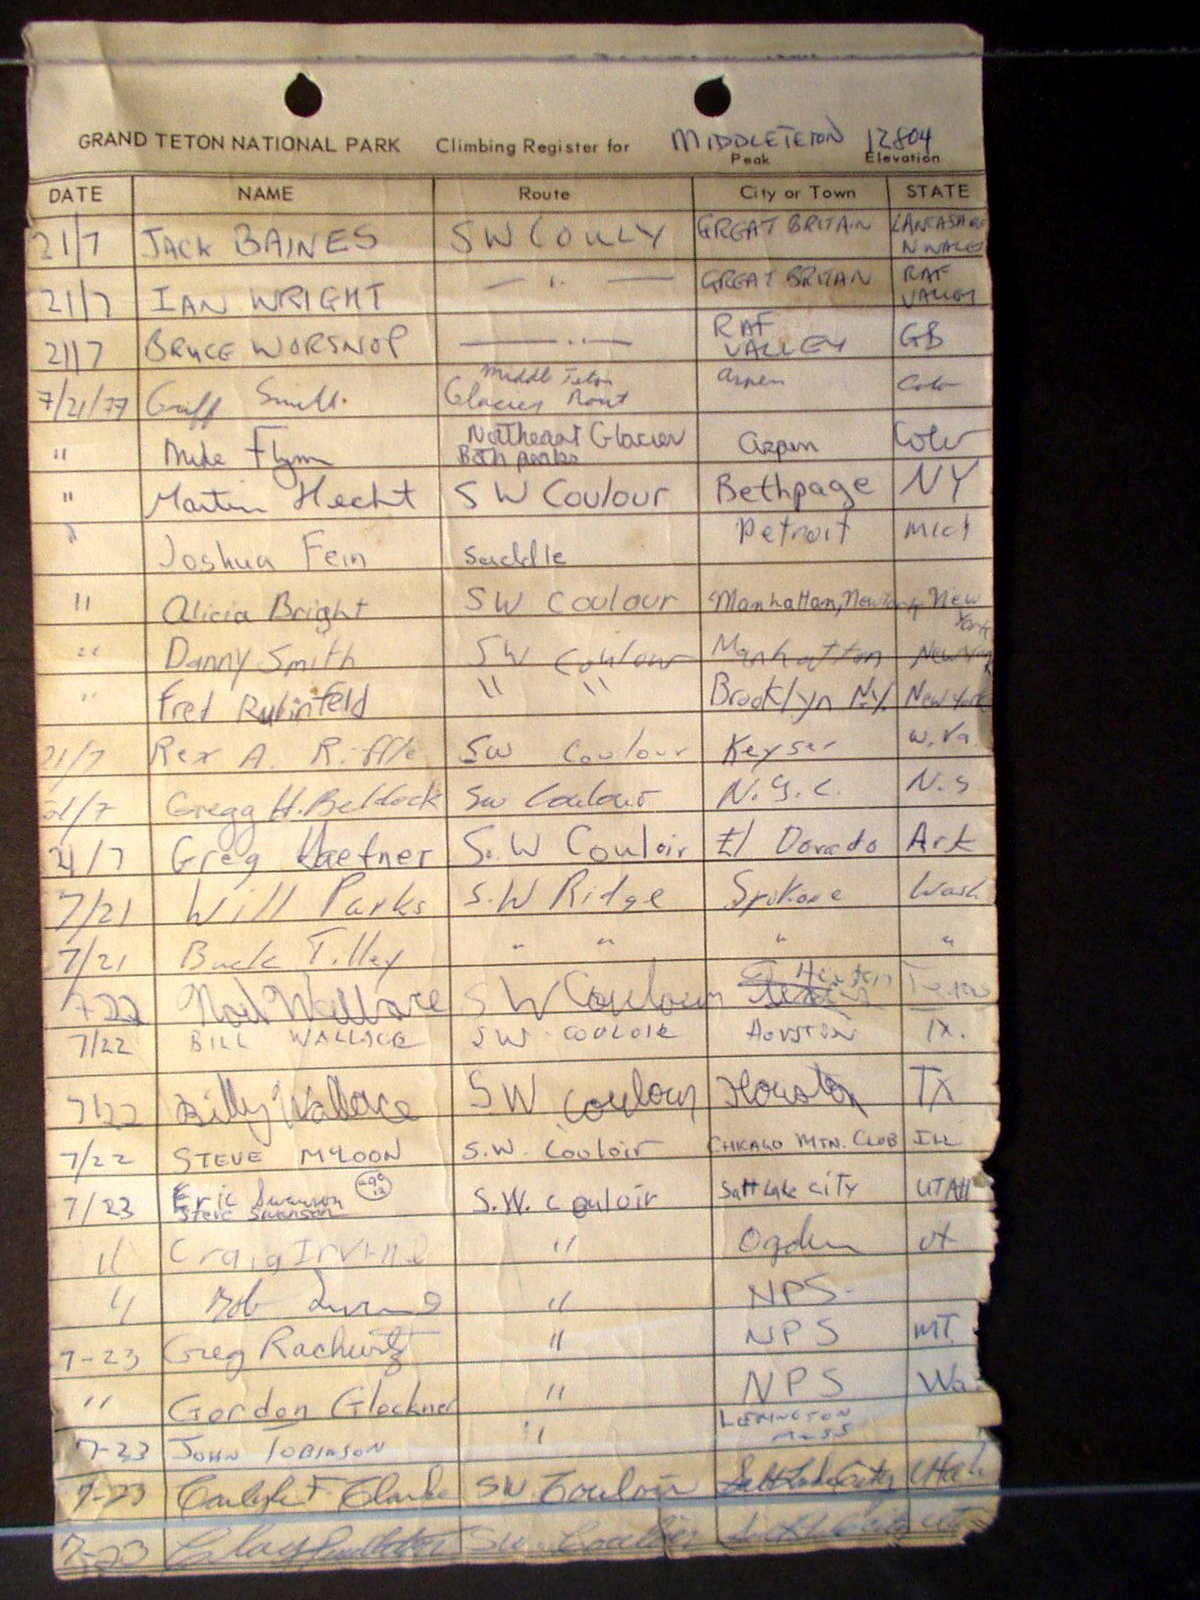 GRAND TETON NATIONAL PARK Climbing Register for MIDDLETETON 12804
Peak Elevation
DATE NAME Route City or Town STATE
21/7 JACK BAINES SW COULLY GREAT BRITAIN LANCASHIRE N WALES
21/7 IAN WRIGHT — " — GREAT BRITAN RAF VALLEY
21/7 BRUCE WORSNOP — " — RAF VALLEY GB
7/21/77 Griff Smith. Middle Teton Glacier Rout Aspen Colo
" Mike Flynn Northeast Glacier Both peaks aspen Colo
" Martin Hecht SW Coulour Bethpage NY
" Joshua Fein Saddle Detroit Mich
" Alicia Bright SW Coulour Manhattan, New York New York
" Danny Smith SW Coulour Manhattan New York
" Fred Rubinfeld " " Brooklyn N.Y. New York
21/7 Rex A. Riffle SW Coulour Keyser W. Va.
21/7 Gregg H. Beldock SW Coulour N.Y.C.
21/7 Greg Haefner S.W Couloir El Dorado Ark
7/21 Will Parks S.W Ridge Spokane Wash
7/21 Buck Tilley " " " "
7/22 Wallace SW Texas
7/22 BILL WALLACE SW COULOIR HOUSTON TX.
7/22 Billy Wallace SW Houston TX
7/22 STEVE MCLOON S.W. Couloir CHICAGO MTN. CLUB ILL
7/23 Eric Swanson age 12 S.W. Couloir Salt Lake City UTAH
Steve Swanson
" Craig Irvine " Ogden Ut
" Bob Irvine " NPS
7-23 Greg " NPS MT.
" Gordon Glockner " NPS Wa
7-23 JOHN ROBINSON " LEXINGTON MASS
7-23 Carlyle F. Clarke SW. Couloir Salt Lake City Utah
7-23 Clay SW. Couloir Salt Lake City